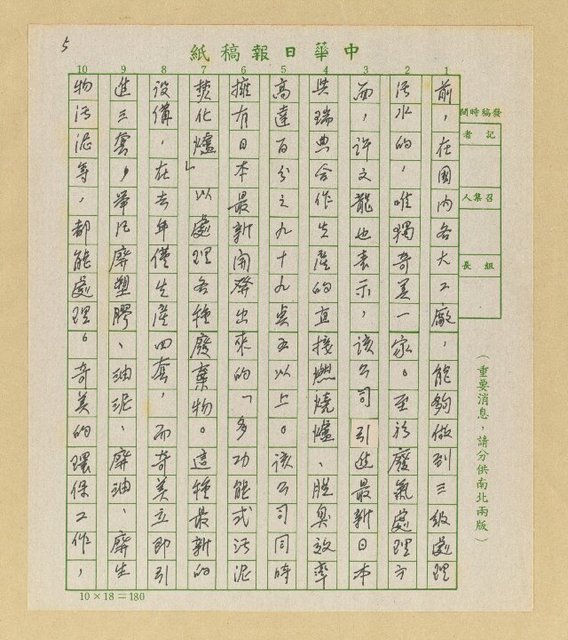 5
中華日報稿紙
1 2 3 4 5 6 7 8 9 10
發稿時間
記者
召集人
組長
（重要消息，請分供南北兩版）
前，在國內各大工廠，能夠做到三級處理
污水的，唯獨奇美一家。至於廢氣處理方
面，許文龍也表示，該公司引進最新日本
與瑞典合作生產的直接燃燒爐、脫臭效率
高達百分之九十九點五以上。該公司同時
擁有日本最新開發出來的「多功能式污泥
焚化爐」以處理各種廢棄物。這種最新的
設備，在去年僅生產四套，而奇美立即引
進三套，舉凡廢塑膠、油泥、廢油、廢生
物污泥等，都能處理。奇美的環保工作，
10×18＝180